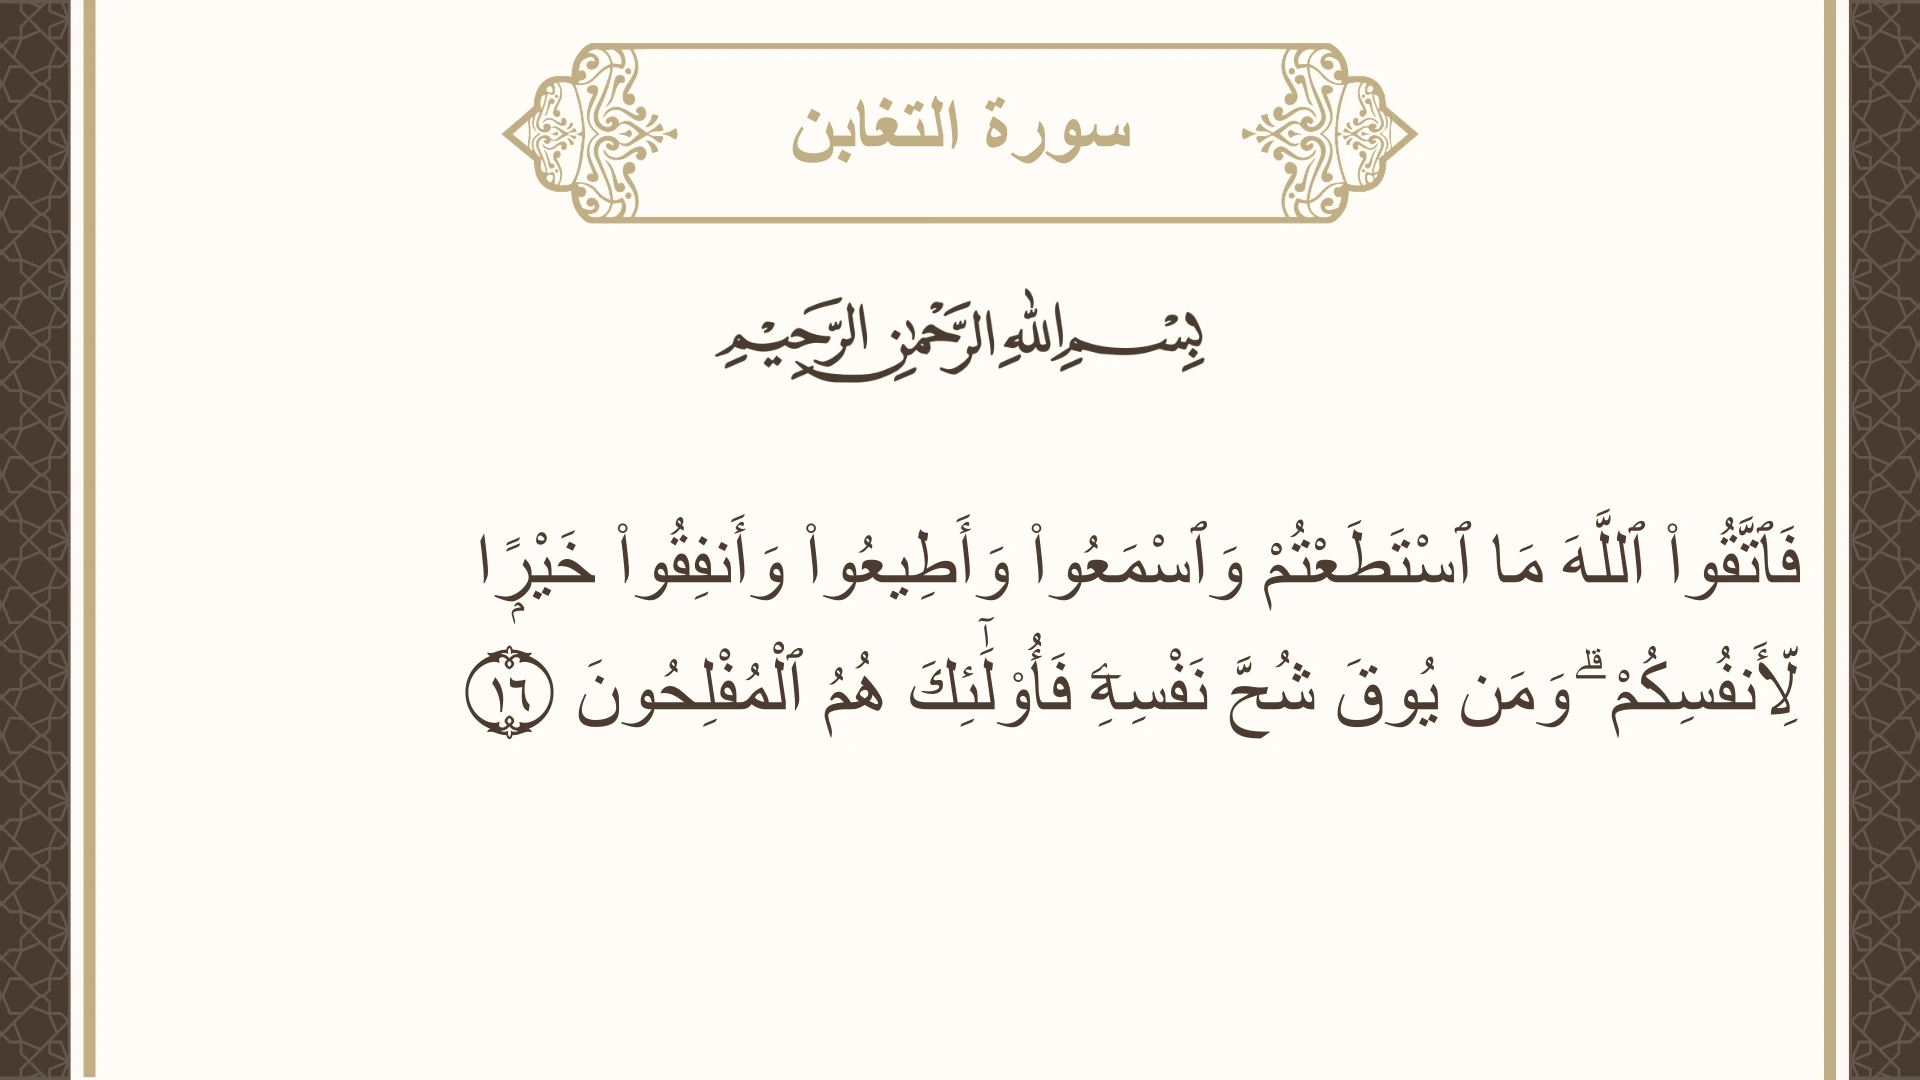 سورة التغابن
بِسْمِ اللهِ الرَّحْمٰنِ الرَّحِيْمِ
فَٱتَّقُوا۟ ٱللَّهَ مَا ٱسْتَطَعْتُمْ وَٱسْمَعُوا۟ وَأَطِيعُوا۟ وَأَنفِقُوا۟ خَيْرًۭا
لِّأَنفُسِكُمْ ۗ وَمَن يُوقَ شُحَّ نَفْسِهِۦ فَأُو۟لَـٰٓئِكَ هُمُ ٱلْمُفْلِحُونَ ١٦